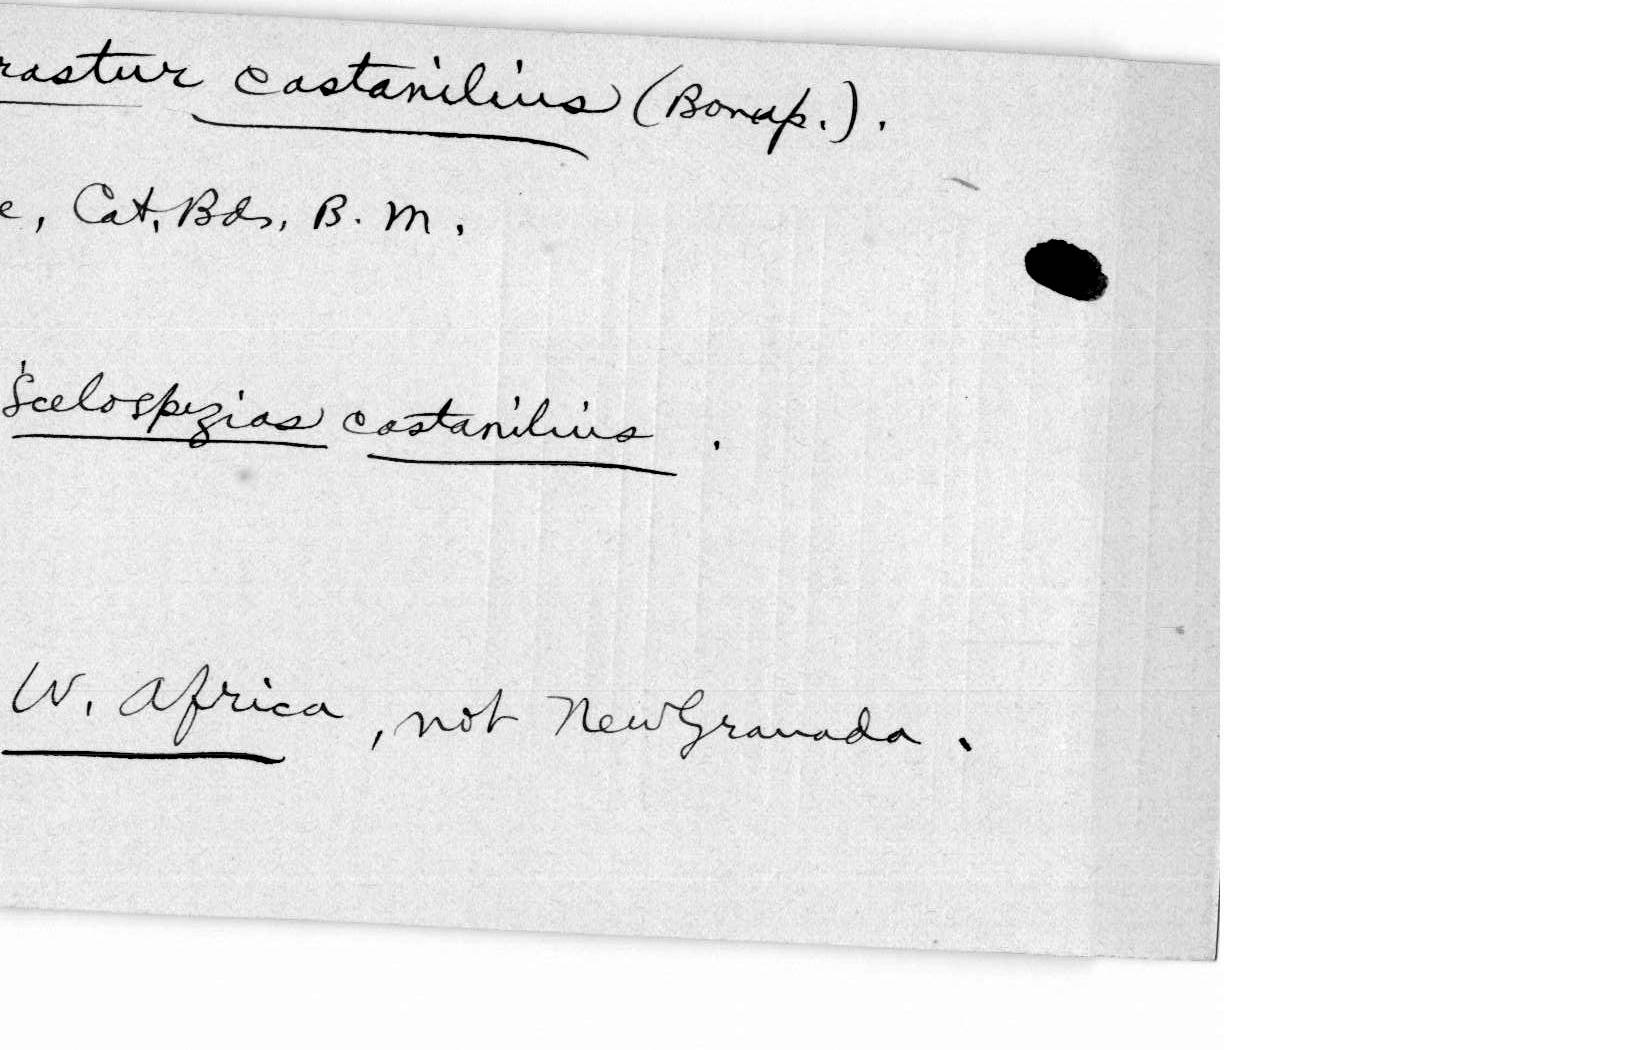 rastur castanilius (Bonap.).
e, Cat. Bds, B. M.
Scelospizias castanilius .
W. Africa, not New Granada .